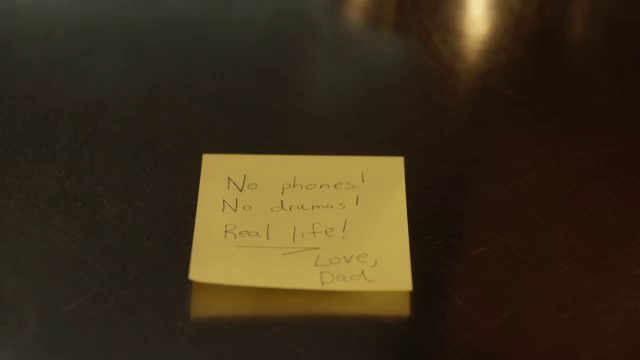 No phones!
No dramas!
Real life!
Love,
Dad